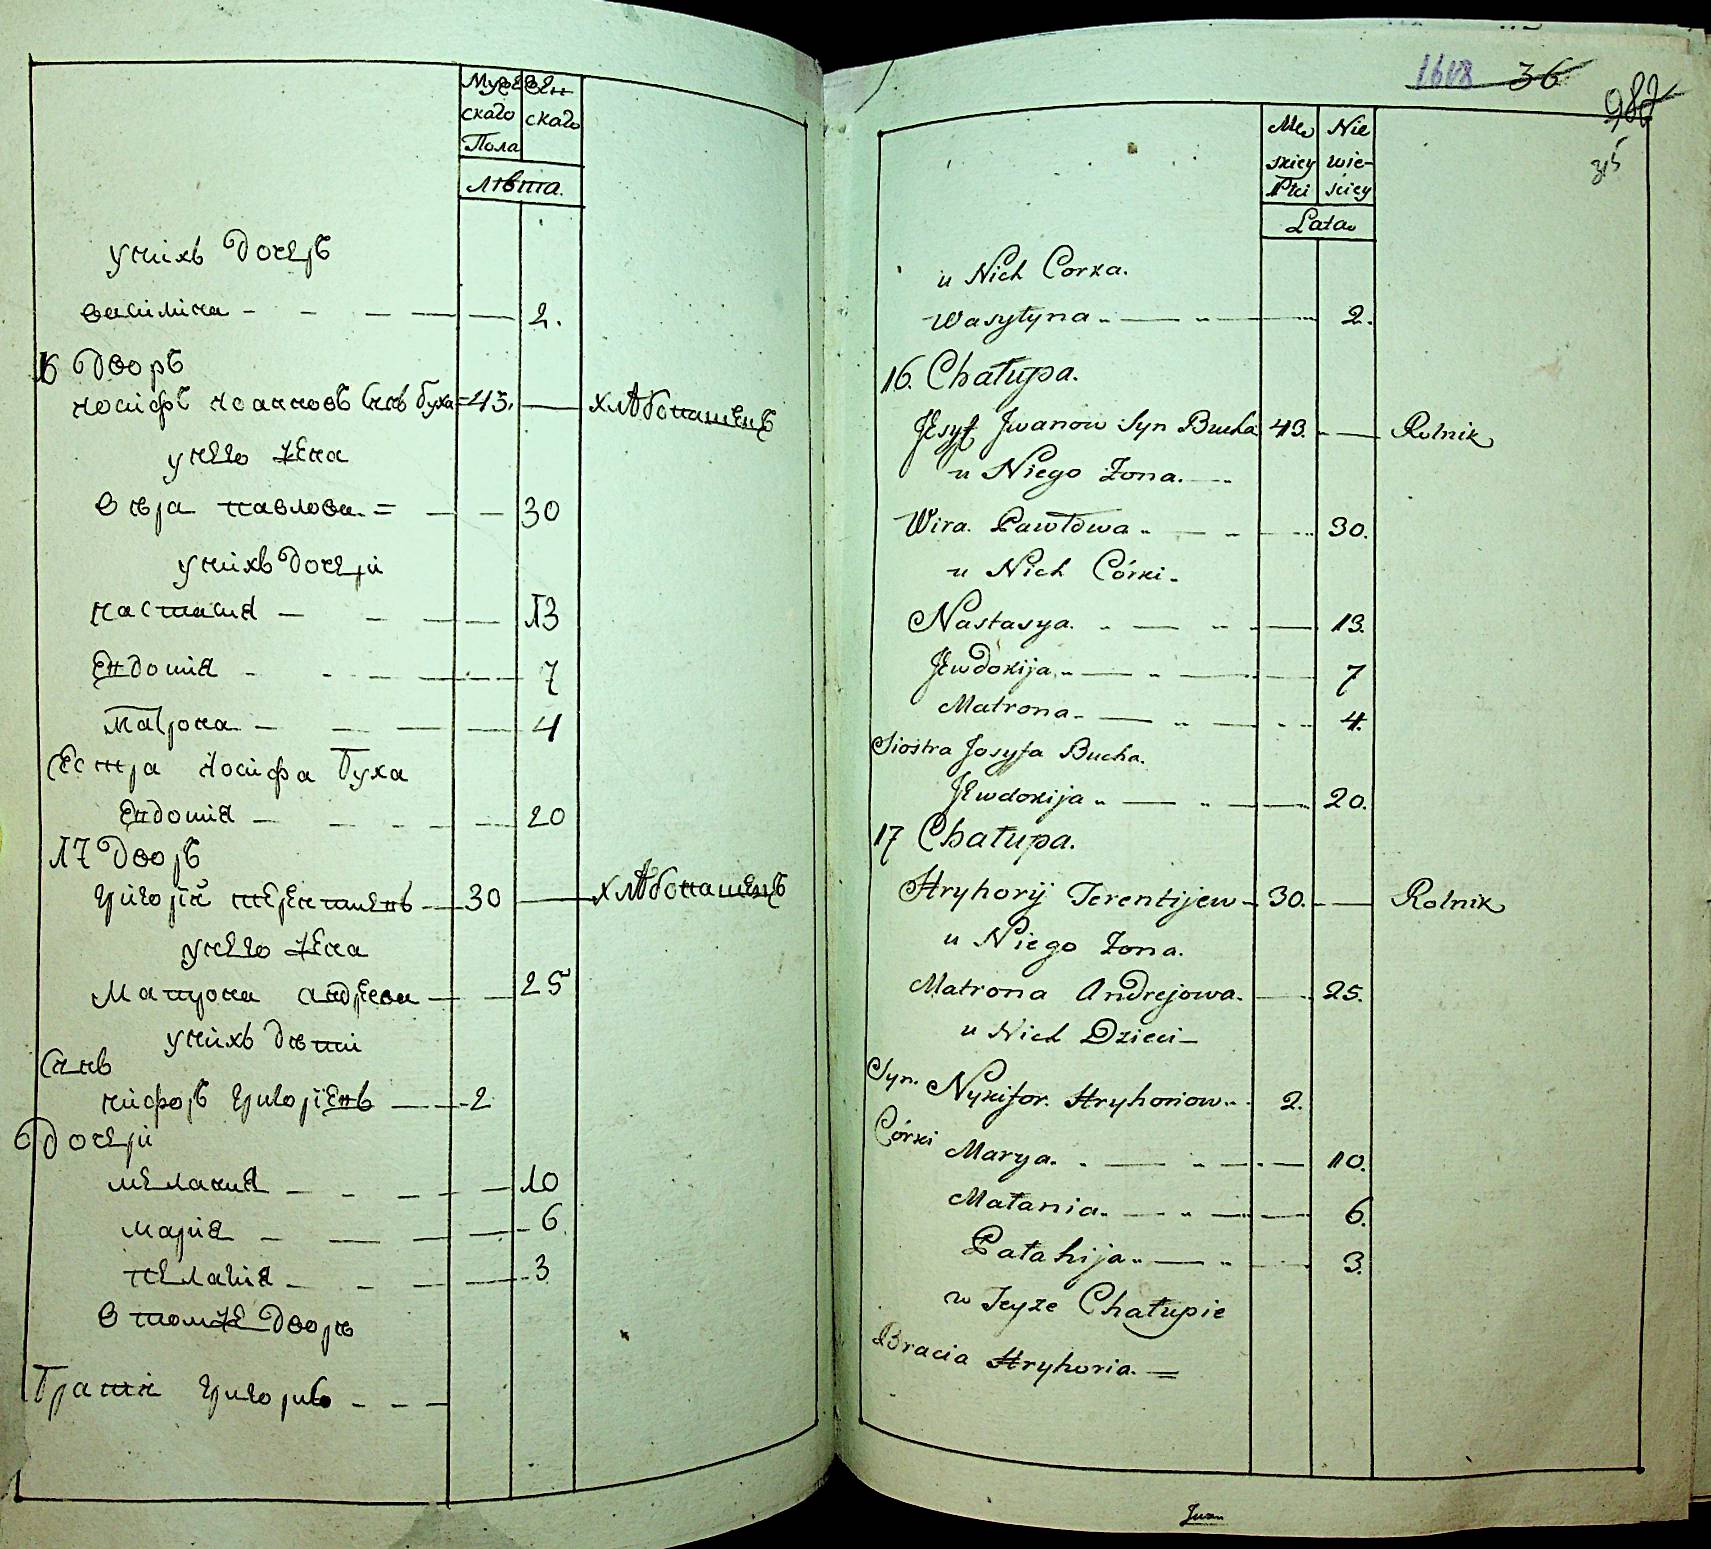 Мужескаго Пола
Женскаго
лѣта.
у нихъ Дочеръ
василина — — — 2.
16 Дворъ
Иосифъ Иоанновъ Снъ Буха = 43. — хлѣбопашецъ
у него жена
Вѣра павлова = — — 30
у нихъ Дочери
настасия — — — 13
Евдокия — — — 7
Матрона — — — 4
Сестра Иосифа Буха
Евдокия — — — 20
17 Дворъ
Григорій терентиевъ — 30 — хлѣбопашецъ
у него жена
Матрона андреева — — 25
у нихъ дѣти
Снъ
нифоръ Григоріевъ — 2
Дочери
мелания — — — 10
мария — — — 6
пелагия — — — 3
в томже Дворѣ
Братя Григория — — —
1608 36
982
315
Męskiey Płci
Niewieściey
Lata
u Nich Corka.
Wasyłyna — 2.
16. Chałupa.
Jesyf Jwanow Syn Bucha 43. — Rolnik
u Niego Żona.
Wira Pawłowa — 30.
u Nich Córki
Nastasya. — 13.
Jewdokija — 7
Matrona — 4.
Siostra Josyfa Bucha.
Jewdokija — 20.
17 Chałupa.
Hryhorij Terentijew — 30. — Rolnik
u Niego Żona.
Matrona Andrejowa. — 25.
u Nich Dzieci
Syn.
Nykifor. Hryhoriow — 2.
Córki
Marya. — 10.
Małania — 6.
Pałahija — 3.
w Teyże Chałupie
Bracia Hryhoria. =
Jwan